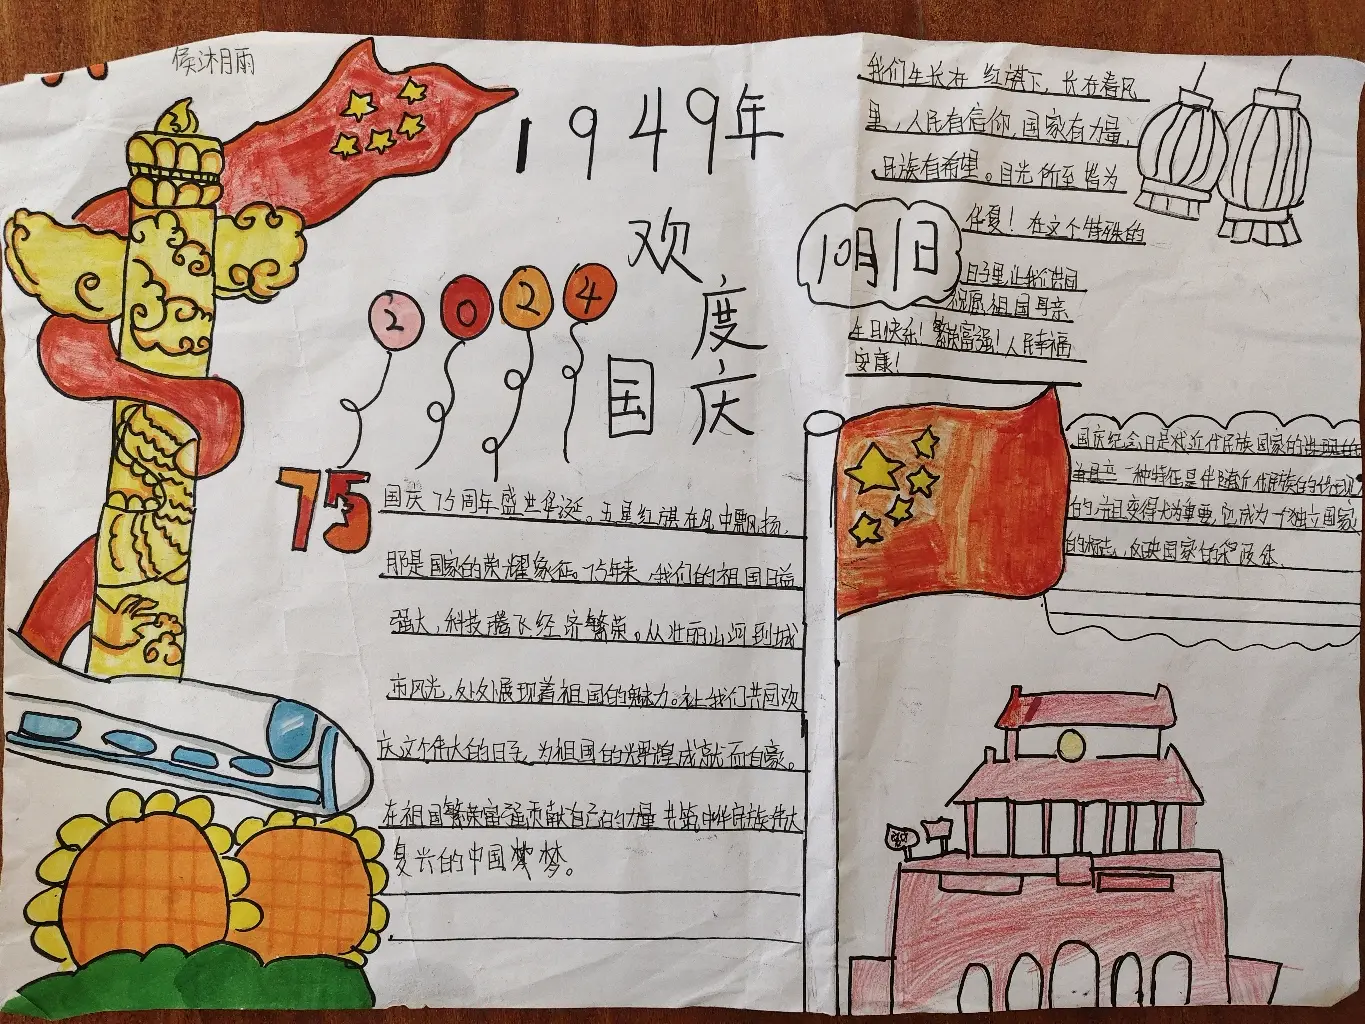 侯沐雨
1949年
欢
度
国庆
2024
75
国庆75周年盛世华诞。五星红旗在风中飘扬,
那是国家的荣耀象征。75年来,我们的祖国日益
强大,科技腾飞经济繁荣。从壮丽山河到城
市风光,处处展现着祖国的魅力。让我们共同欢
庆这个伟大的日子,为祖国的辉煌成就而自豪。
在祖国繁荣富强贡献自己的力量共筑中华民族伟大
复兴的中国梦。
我们生长在 红旗下,长在春风
里,人民有信仰,国家有力量,
民族有希望。目光所至皆为
华夏!在这个特殊的
10月1日
日子里让我们共同
祝愿祖国母亲
生日快乐!繁荣富强!人民幸福
安康!
国庆纪念日是代近代民族国家的
一种特征是伴随近代民族的
的,并且变得尤为重要,它成为一个独立国家
的标志,反映国家的